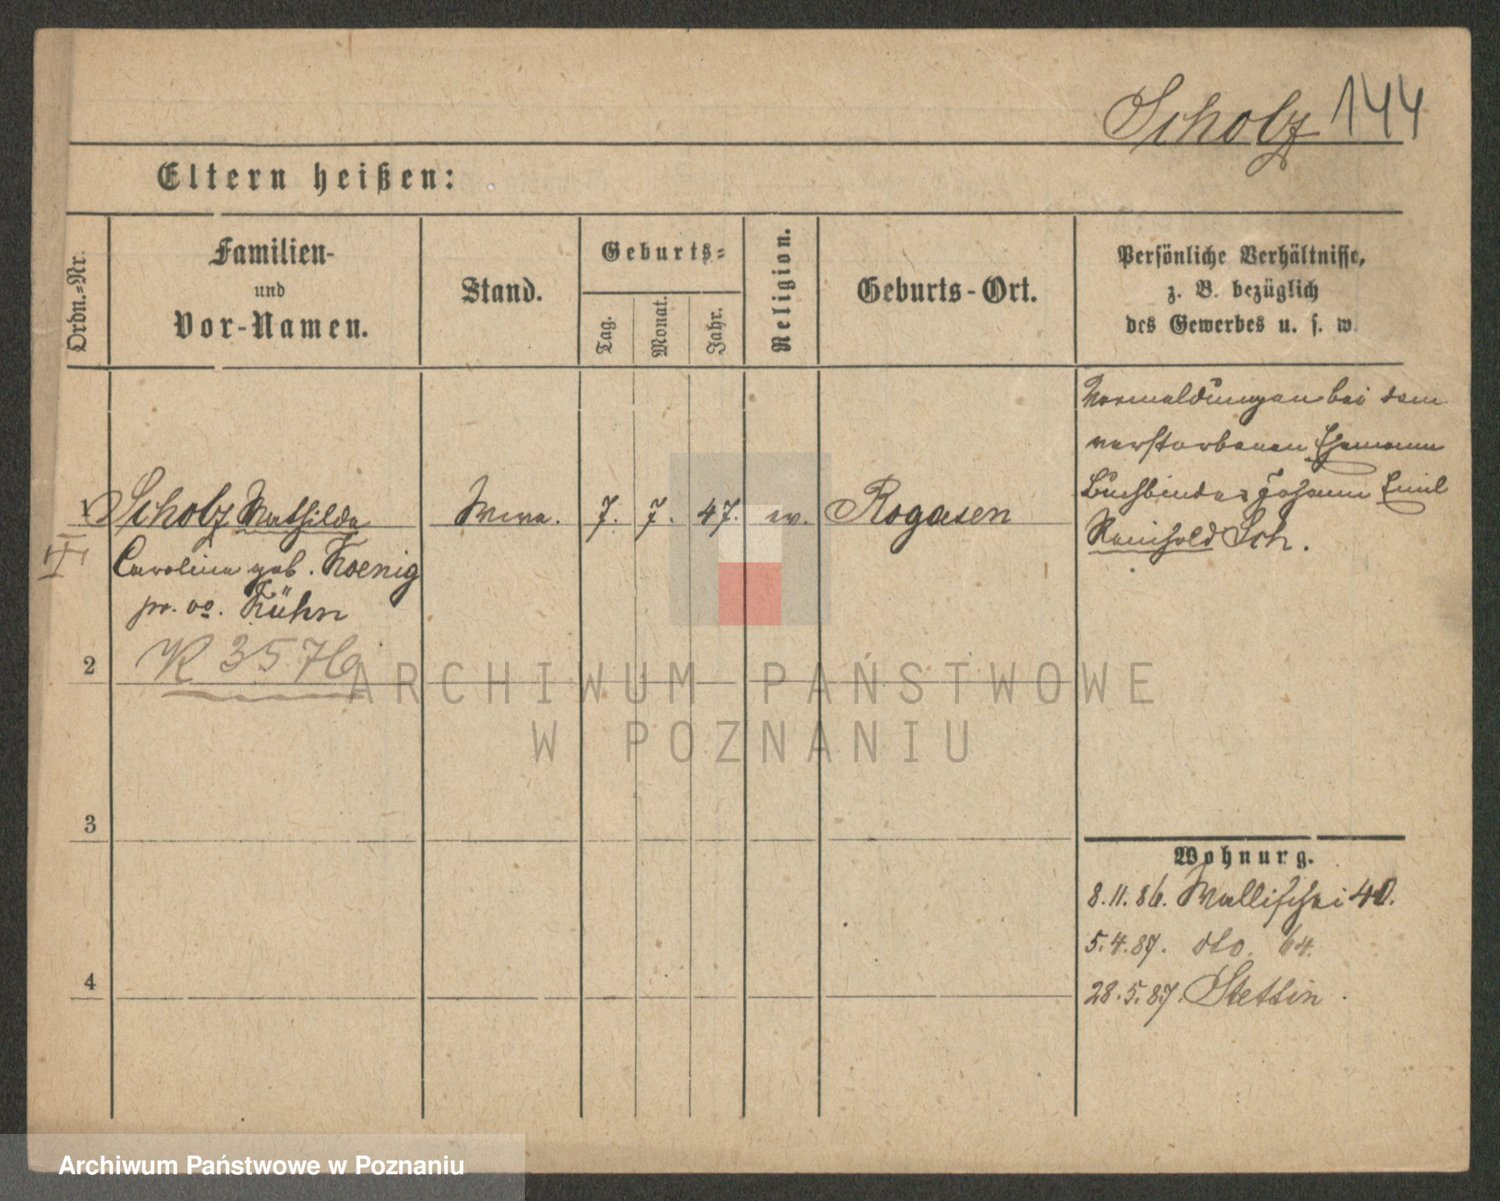 Scholz 144
Eltern heißen:
Ordn.-Nr.
Familien-
und
Vor-Namen.
Stand.
Geburts-
Tag.
Monat.
Jahr.
Religion.
Geburts-Ort.
Persönliche Verhältnisse,
z. B. bezüglich
des Gewerbes u. s. w.
1 Scholz Mathilde Wwe. 7. 7. 47. ev. Rogasen
Caroline geb. Koenig
pr. vo. Kühn
Vormeldungen bei dem
verstorbenen Ehemann
Buchbinder Johann Emil
Reinhold Sch.
2
K 35
3
4
Wohnung.
8.11.86. Wallischei 40.
5.4.87. dto. 64.
28.5.87. Stettin.
ARCHIWUM PAŃSTWOWE
W POZNANIU
Archiwum Państwowe w Poznaniu